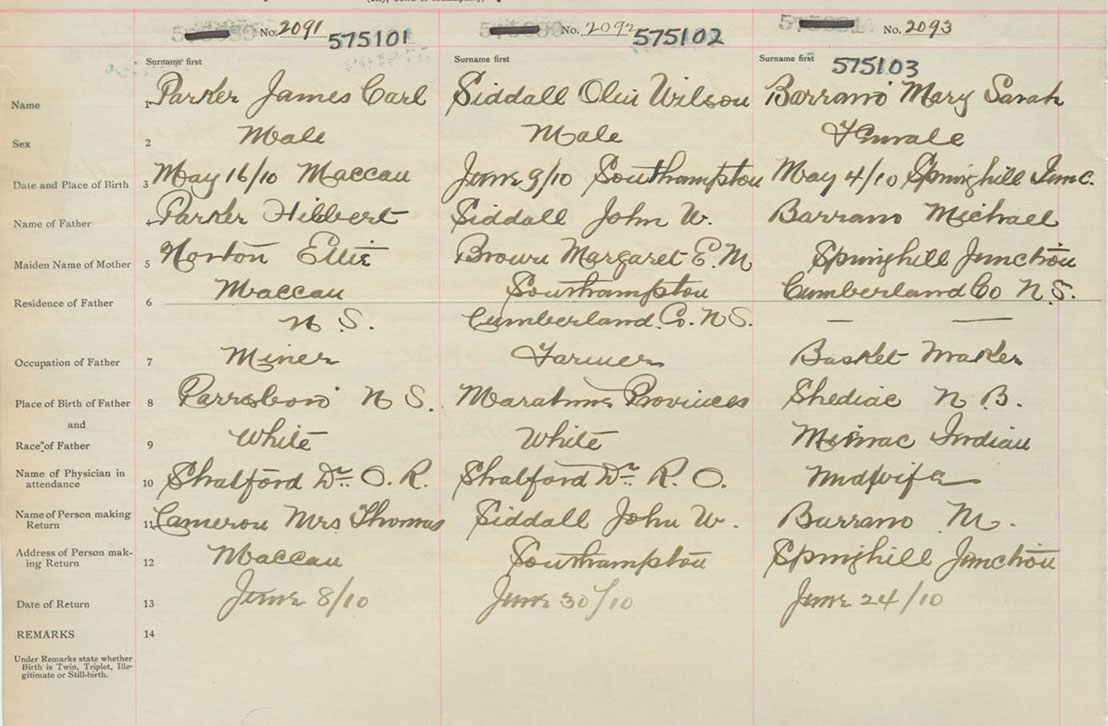 No. 2091 575101 No. 2092 575102 No. 2093
Surname first Surname first Surname first 575103
Name 1 Parker James Carl Siddall Olin Wilson Barrano Mary Sarah
Sex 2 Male Male Female
Date and Place of Birth 3 May 16/10 Maccan June 9/10 Southampton May 4/10 Springhill Junc.
Name of Father Parker Hibbert Siddall John W. Barrano Michael
Maiden Name of Mother 5 Norton Brown Margaret E. M Springhill Junction
Residence of Father 6 Maccan Southampton Cumberland Co N.S.
N S. Cumberland Co. N S. — —
Occupation of Father 7 Miner Farmer Basket Maker
Place of Birth of Father 8 Parrsboro N S. Provinces Shediac N B.
and
Race of Father 9 White White Micmac Indian
Name of Physician in
attendance 10 Shatford Dr. O. R. Shatford Dr. R. O. Midwife
Name of Person making
Return 11 Cameron Mrs Thomas Siddall John W. Barrano M.
Address of Person mak-
ing Return 12 Maccan Southampton Springhill Junction
Date of Return 13 June 8/10 June 30/10 June 24/10
REMARKS 14
Under Remarks state whether
Birth is Twin, Triplet, Ille-
gitimate or Still-birth.